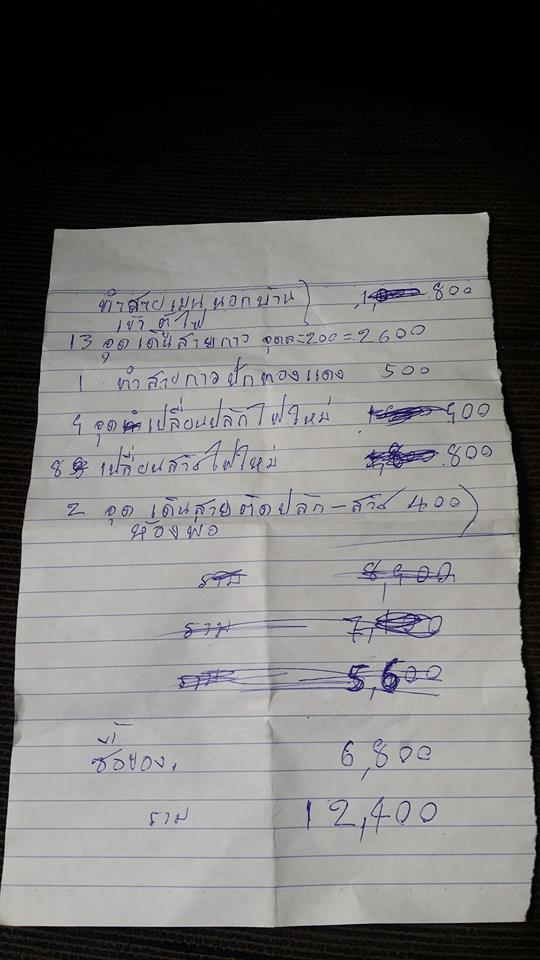 ทำสายเมนนอกบ้าน 800
เข้าตู้ไฟ
13 จุด เดินสายกาว จุดละ=200=2600
1 ทำสายกาวฝักทองแดง 500
9 จุด เปลี่ยนปลักไฟใหม่ 900
8 เปลี่ยนสวิซไฟใหม่ 800
2 จุด เดินสายติดปลัก - สวิซ 400
ห้องพ่อ
รวม 8,900
รวม
รวม 5,600
ซื้อของ. 6,800
รวม 12,400